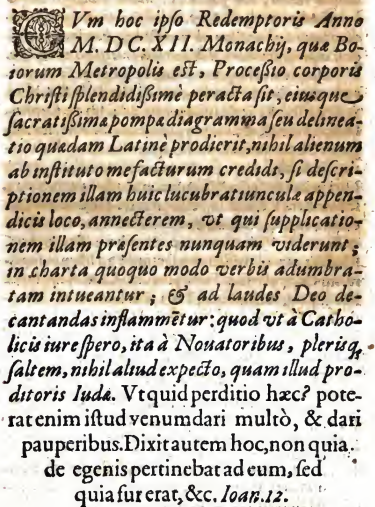 CVm hoc ipſo Redemptoris Anno
M. DC. XII. Monachij, quæ Bo-
iorum Metropolis eſt, Proceſſio corporis
Chriſti ſplendidiſſimè peracta ſit, eiusque
ſacratiſſimæ pompæ diagramma ſeu delinea-
tio quædam Latinè prodierit, nihil alienum
ab inſtituto me facturum credidi, ſi deſcri-
ptionem illam huic lucubratiunculæ appen-
dicis loco, annecterem, vt qui ſupplicatio-
nem illam præſentes nunquam viderunt;
in charta quoquo modo verbis adumbra-
tam intueantur; & ad laudes Deo de-
cantandas inflammētur: quod vt à Catho-
licis iure ſpero, ita à Nouatoribus, plerisq,
ſaltem, nihil aliud expecto, quam illud pro-
ditoris Iudæ. Vt quid perditio hæc? pote-
rat enim iſtud venumdari multò, & dari
pauperibus. Dixit autem hoc, non quia
de egenis pertinebat ad eum, ſed
quia fur erat, &c. Ioan. 12.